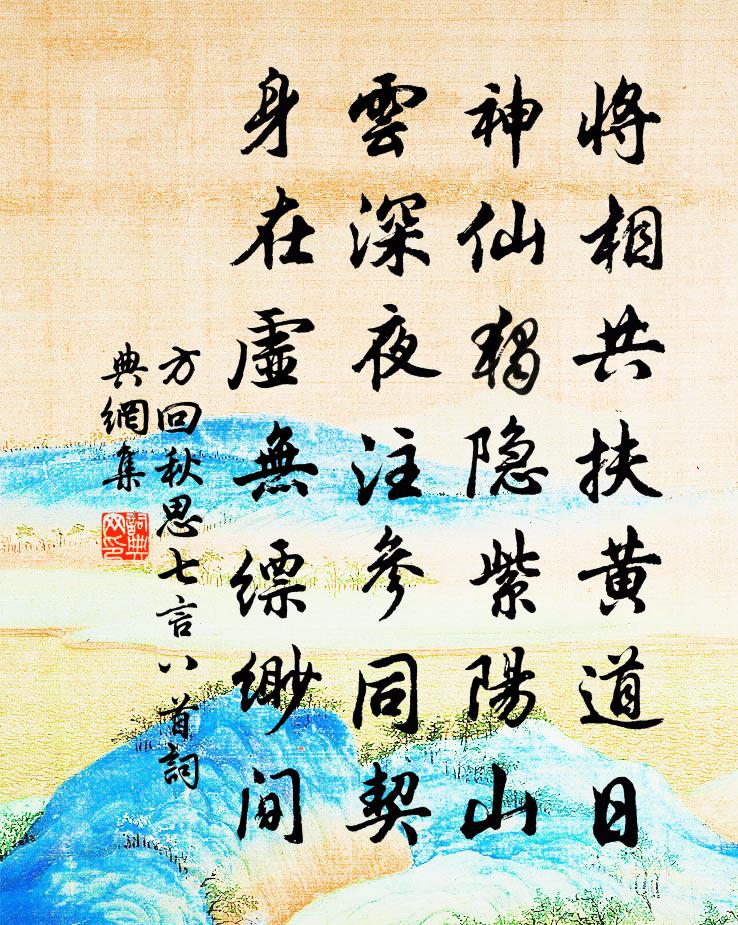 將相共扶黃道日
神仙獨隐紫陽山
雲深夜注參同契
身在虛無縹緲間
方回秋思七言八首詞
典網集
詞典
网印